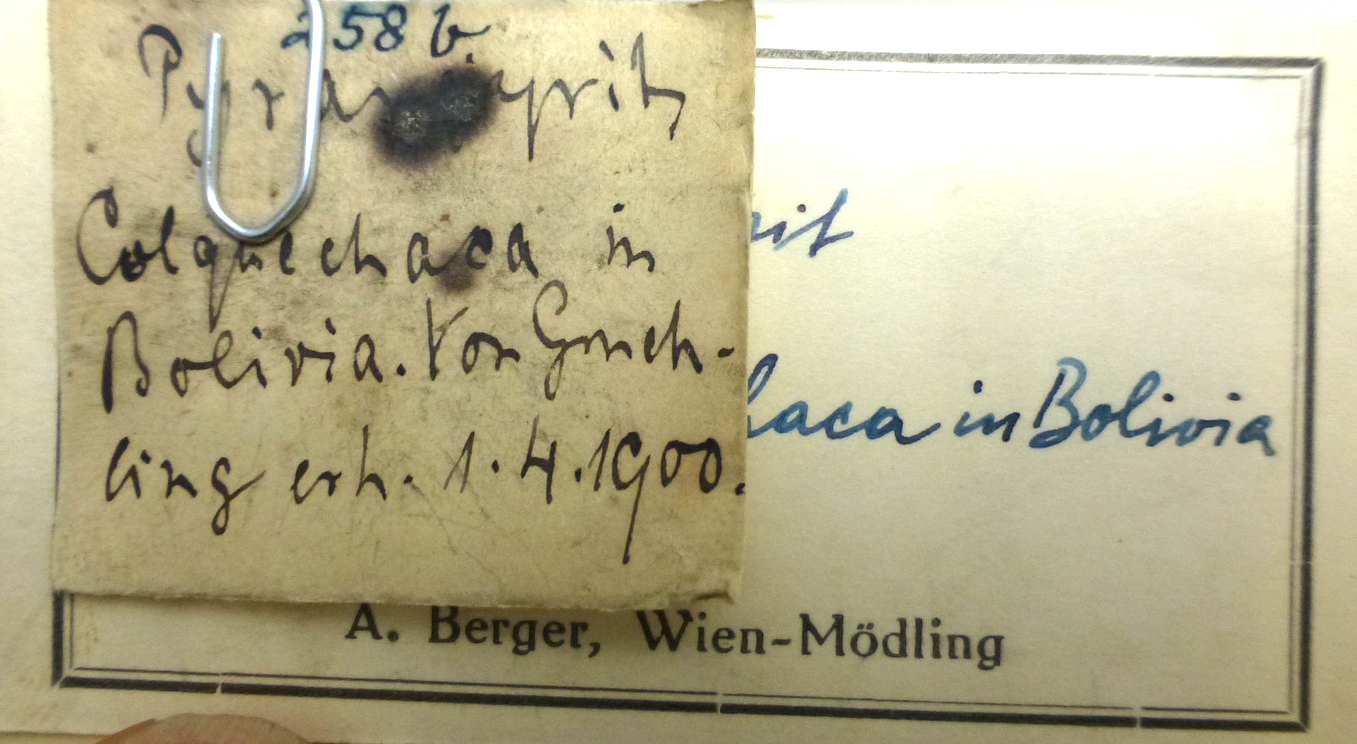 258 b
Colquechaca in
Bolivia. Von Gmeh-
ling erh. 1.4.1900.
rit
haca in Bolivia
A. Berger, Wien-Mödling